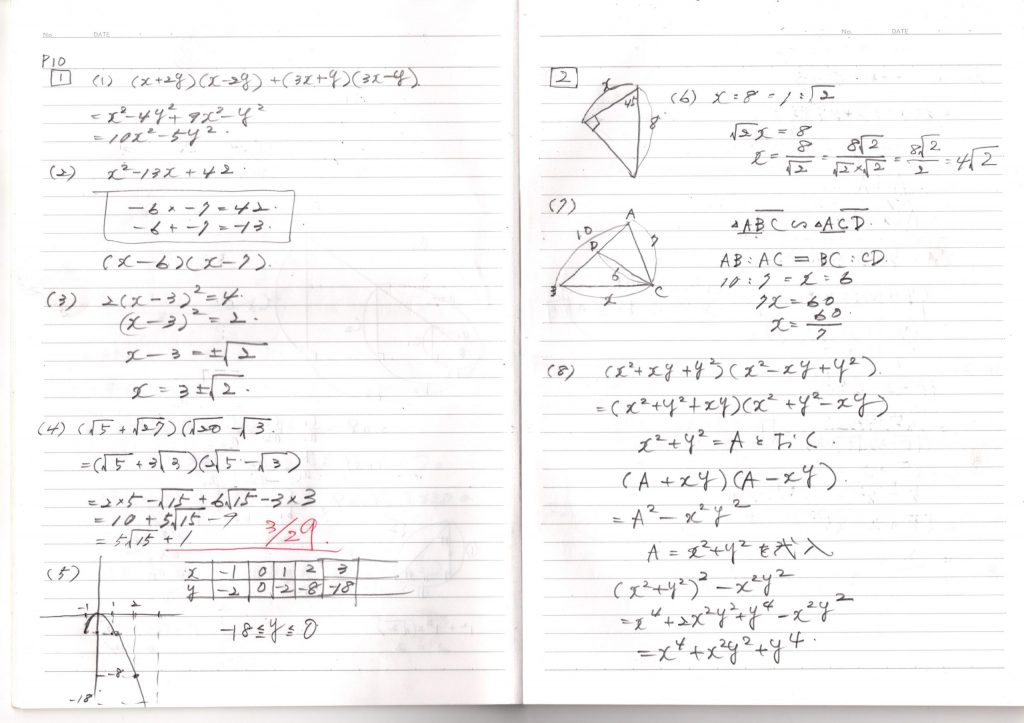 No.
DATE
P10
1 (1) (x+2y)(x-2y)+(3x+y)(3x-y)
=x²-4y²+9x²-y²
=10x²-5y².
(2) x²-13x+42.
-6×-7=42.
-6+-7=-13.
(x-6)(x-7).
(3) 2(x-3)²=4.
(x-3)²=2.
x-3=±√2
x=3±√2.
(4) (√5+√27)(√20-√3.
=(√5+3√3)(2√5-√3)
=2×5-√15+6√15-3×3
=10+5√15-9
=5√15+1
3/29.
(5)
x -1 0 1 2 3
y -2 0 -2 -8 -18
-1 1 2
-18≦y≦0
-8
-18
No.
DATE
2
x
45
8
(6) x:8=1:√2
√2x=8
x=8/√2=8√2/√2×√2=8√2/2=4√2
(7)
A
10
D
7
6
B
x
C
△ABC∽△ACD.
AB:AC=BC:CD.
10:7=x:6
7x=60
x=60/7
(8) (x²+xy+y²)(x²-xy+y²).
=(x²+y²+xy)(x²+y²-xy)
x²+y²=Aとおく.
(A+xy)(A-xy).
=A²-x²y²
A=x²+y²を代入
(x²+y²)²-x²y²
=x⁴+2x²y²+y⁴-x²y²
=x⁴+x²y²+y⁴.